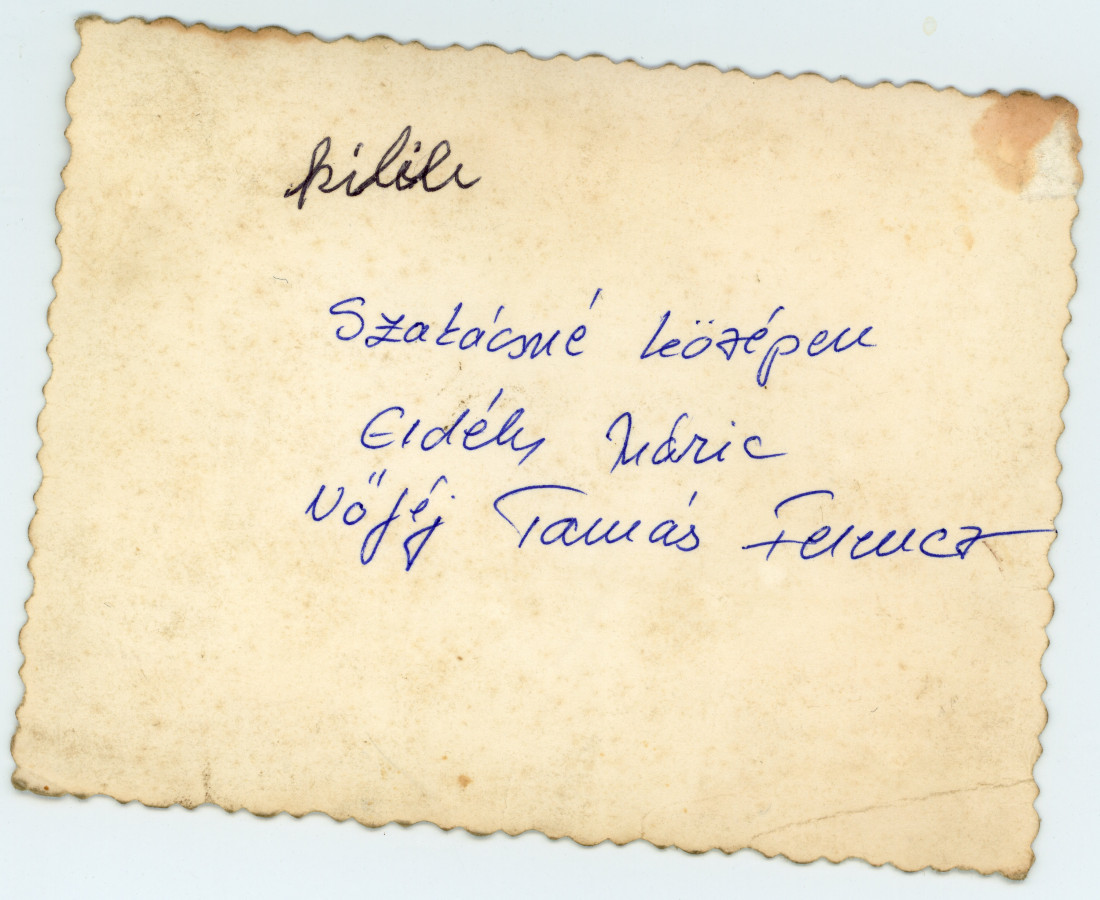 Szakácsné középen
Erdély Mária
Nőféj Tamás Ferencz